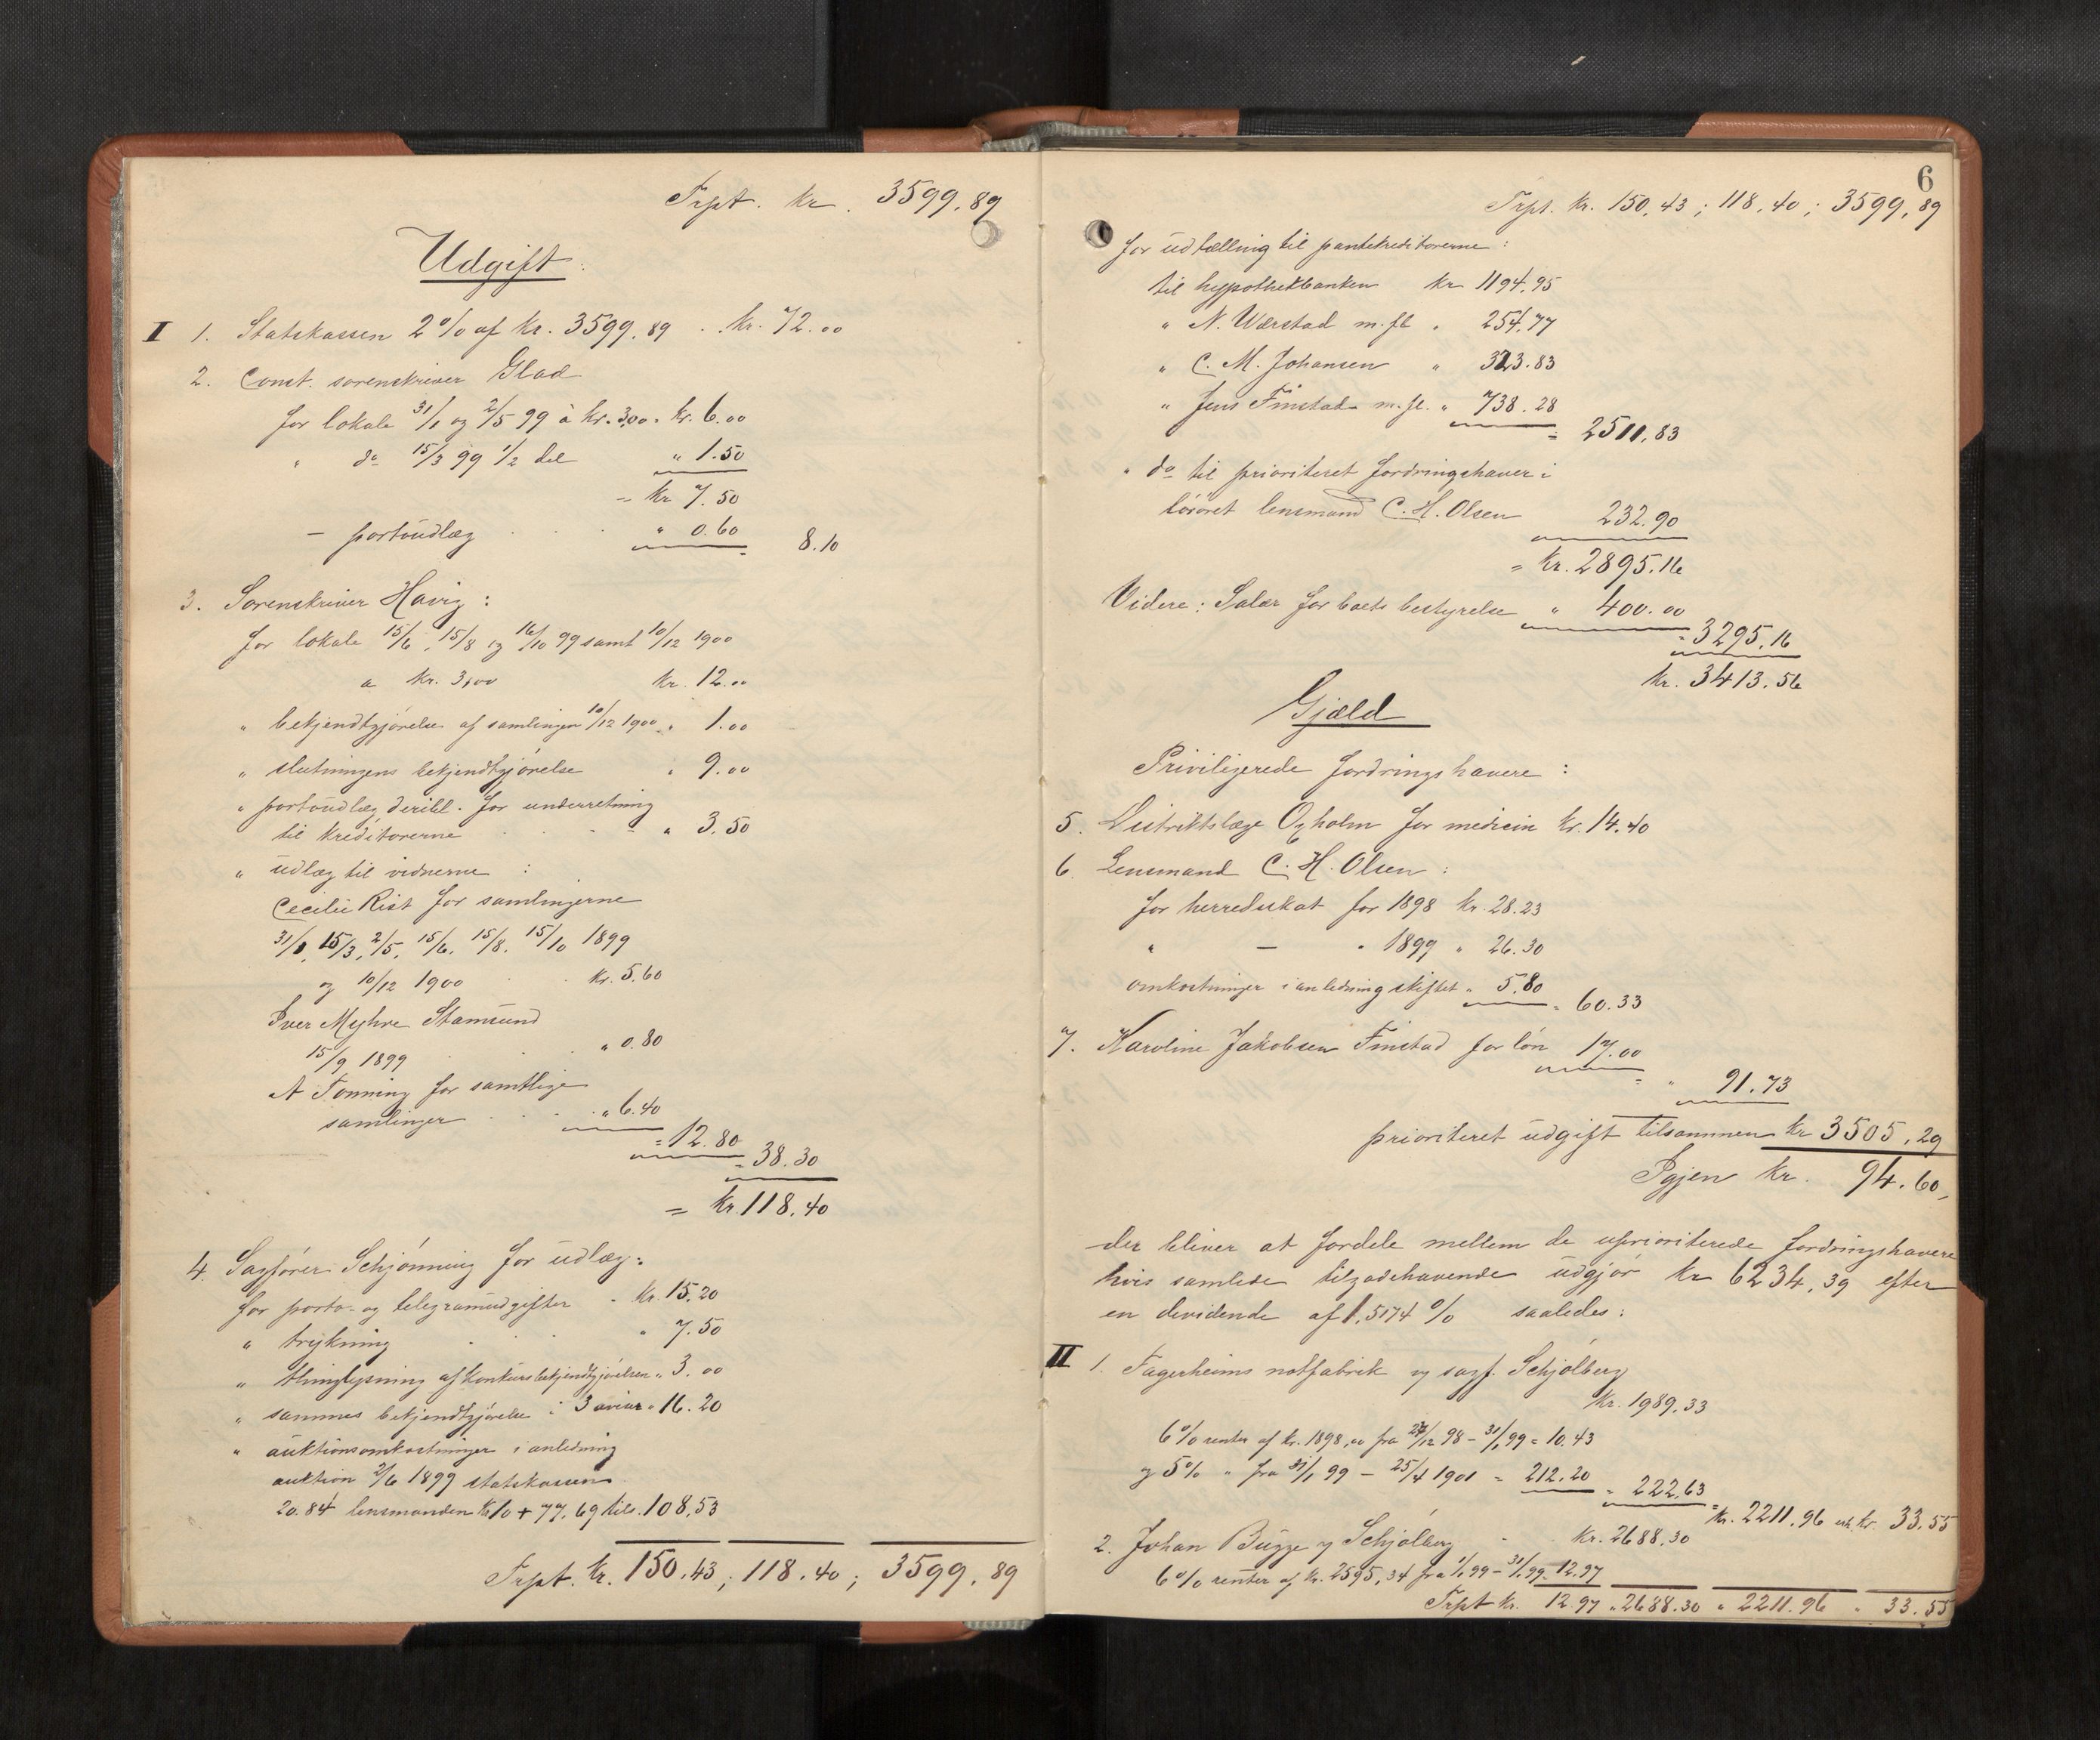 Trpt. kr. 3599.89
Udgift:
I 1. Statskassen 2% af kr. 3599.89 . kr. 72.00
2. Const. sorenskriver Glad
for lokale 31/1 og 2/5 99 à kr. 3,00 = kr. 6.00
" do 15/3 99 1/2 del " 1.50
= kr 7.50
— portoudlæg . . . " 0.60 = 8.10
3. Sorenskriver Havig:
for lokale 15/6, 15/8 og 16/10 99 samt 10/12 1900
a kr. 3,00 kr. 12.00
" bekjendtgjørelse af samlingen 10/12 1900 " 1.00
" slutningens bekjendtgjørelse " 9.00
" portoudlæg, deribl. for underretning
til kreditorerne . . . " 3.50
" udlæg til vidnerne :
Cecilie Rist for samlingerne
31/1, 15/3, 2/5, 15/6, 15/8, 15/10 1899
og 10/12 1900 . . kr. 5.60
Iver Myhre Stamsund
15/9 1899 . . " 0.80
A Tonning for samtlige
samlinger . . . " 6.40
= 12.80
= 38.30
= kr. 118.40
4. Sagfører Schjønning for udlæg:
for porto- og telegramudgifter - kr. 15.20
" trykning . . . " 7.50
" thinglysning af konkursbekjendtgjørelsen " 3.00
" sammes bekjendtgjørelse i 3 aviser " 16.20
" auktionsomkostninger i anledning
auktion 2/6 1899 statskassen
20.84 lensmanden kr 10 + 77.69 tils. 108,53
Trpt. kr. 150.43 ; 118.40 ; 3599.89
6
Trpt. kr. 150.43 ; 118.40 ; 3599.89
for udtælling til pantekreditorerne :
til hypothekbanken kr 1194.95
" N. Værstad m.fl. " 254.77
" C. M. Johansen " 323.83
" Jens Finstad m.fl. " 738.28
= 2511.83
" do til prioriteret fordringshaver i
løsøret lensmand C. H. Olsen 232.90
= kr. 2895.16
Videre: Salær for boets bestyrelse " 400.00
= 3295.16
kr. 3413.56
Gjæld
Priviligerede fordringshavere :
5. Distriktslæge Oxholm for medicin kr. 14.40
6. Lensmand C. H. Olsen :
for herredsskat for 1898 kr. 28.23
" — " 1899 " 26.30
omkostninger i anledning skiftet " 5.80 = 60.33
7. Karoline Jakobsen Finstad for løn 17.00
= " 91.73
prioriteret udgift tilsammen kr 3505.29
Igjen kr. 94.60,
der bliver at fordele mellem de uprioriterede fordringshavere
hvis samlede tilgodehavende udgjør kr 6234,39 efter
en dividende af 1.5174 % saaledes:
II 1. Fagerheims notfabrik v sagf. Schjølberg
kr. 1989.33
6% renter af kr. 1898,00 fra 27/12 98 – 31/1 99 = 10.43
og 5% " fra 31/1 99 – 25/4 1901 = 212.20 = 222.63
= kr. 2211.96 erh. kr. 33.55
2. Johan Bugge v Schjølberg - kr. 2688.30
6% renter af kr. 2595,34 fra 1/1 99 – 31/1 99 = 12.97
Trpt kr. 12.97 " 2688.30 " 2211.96 " 33.55